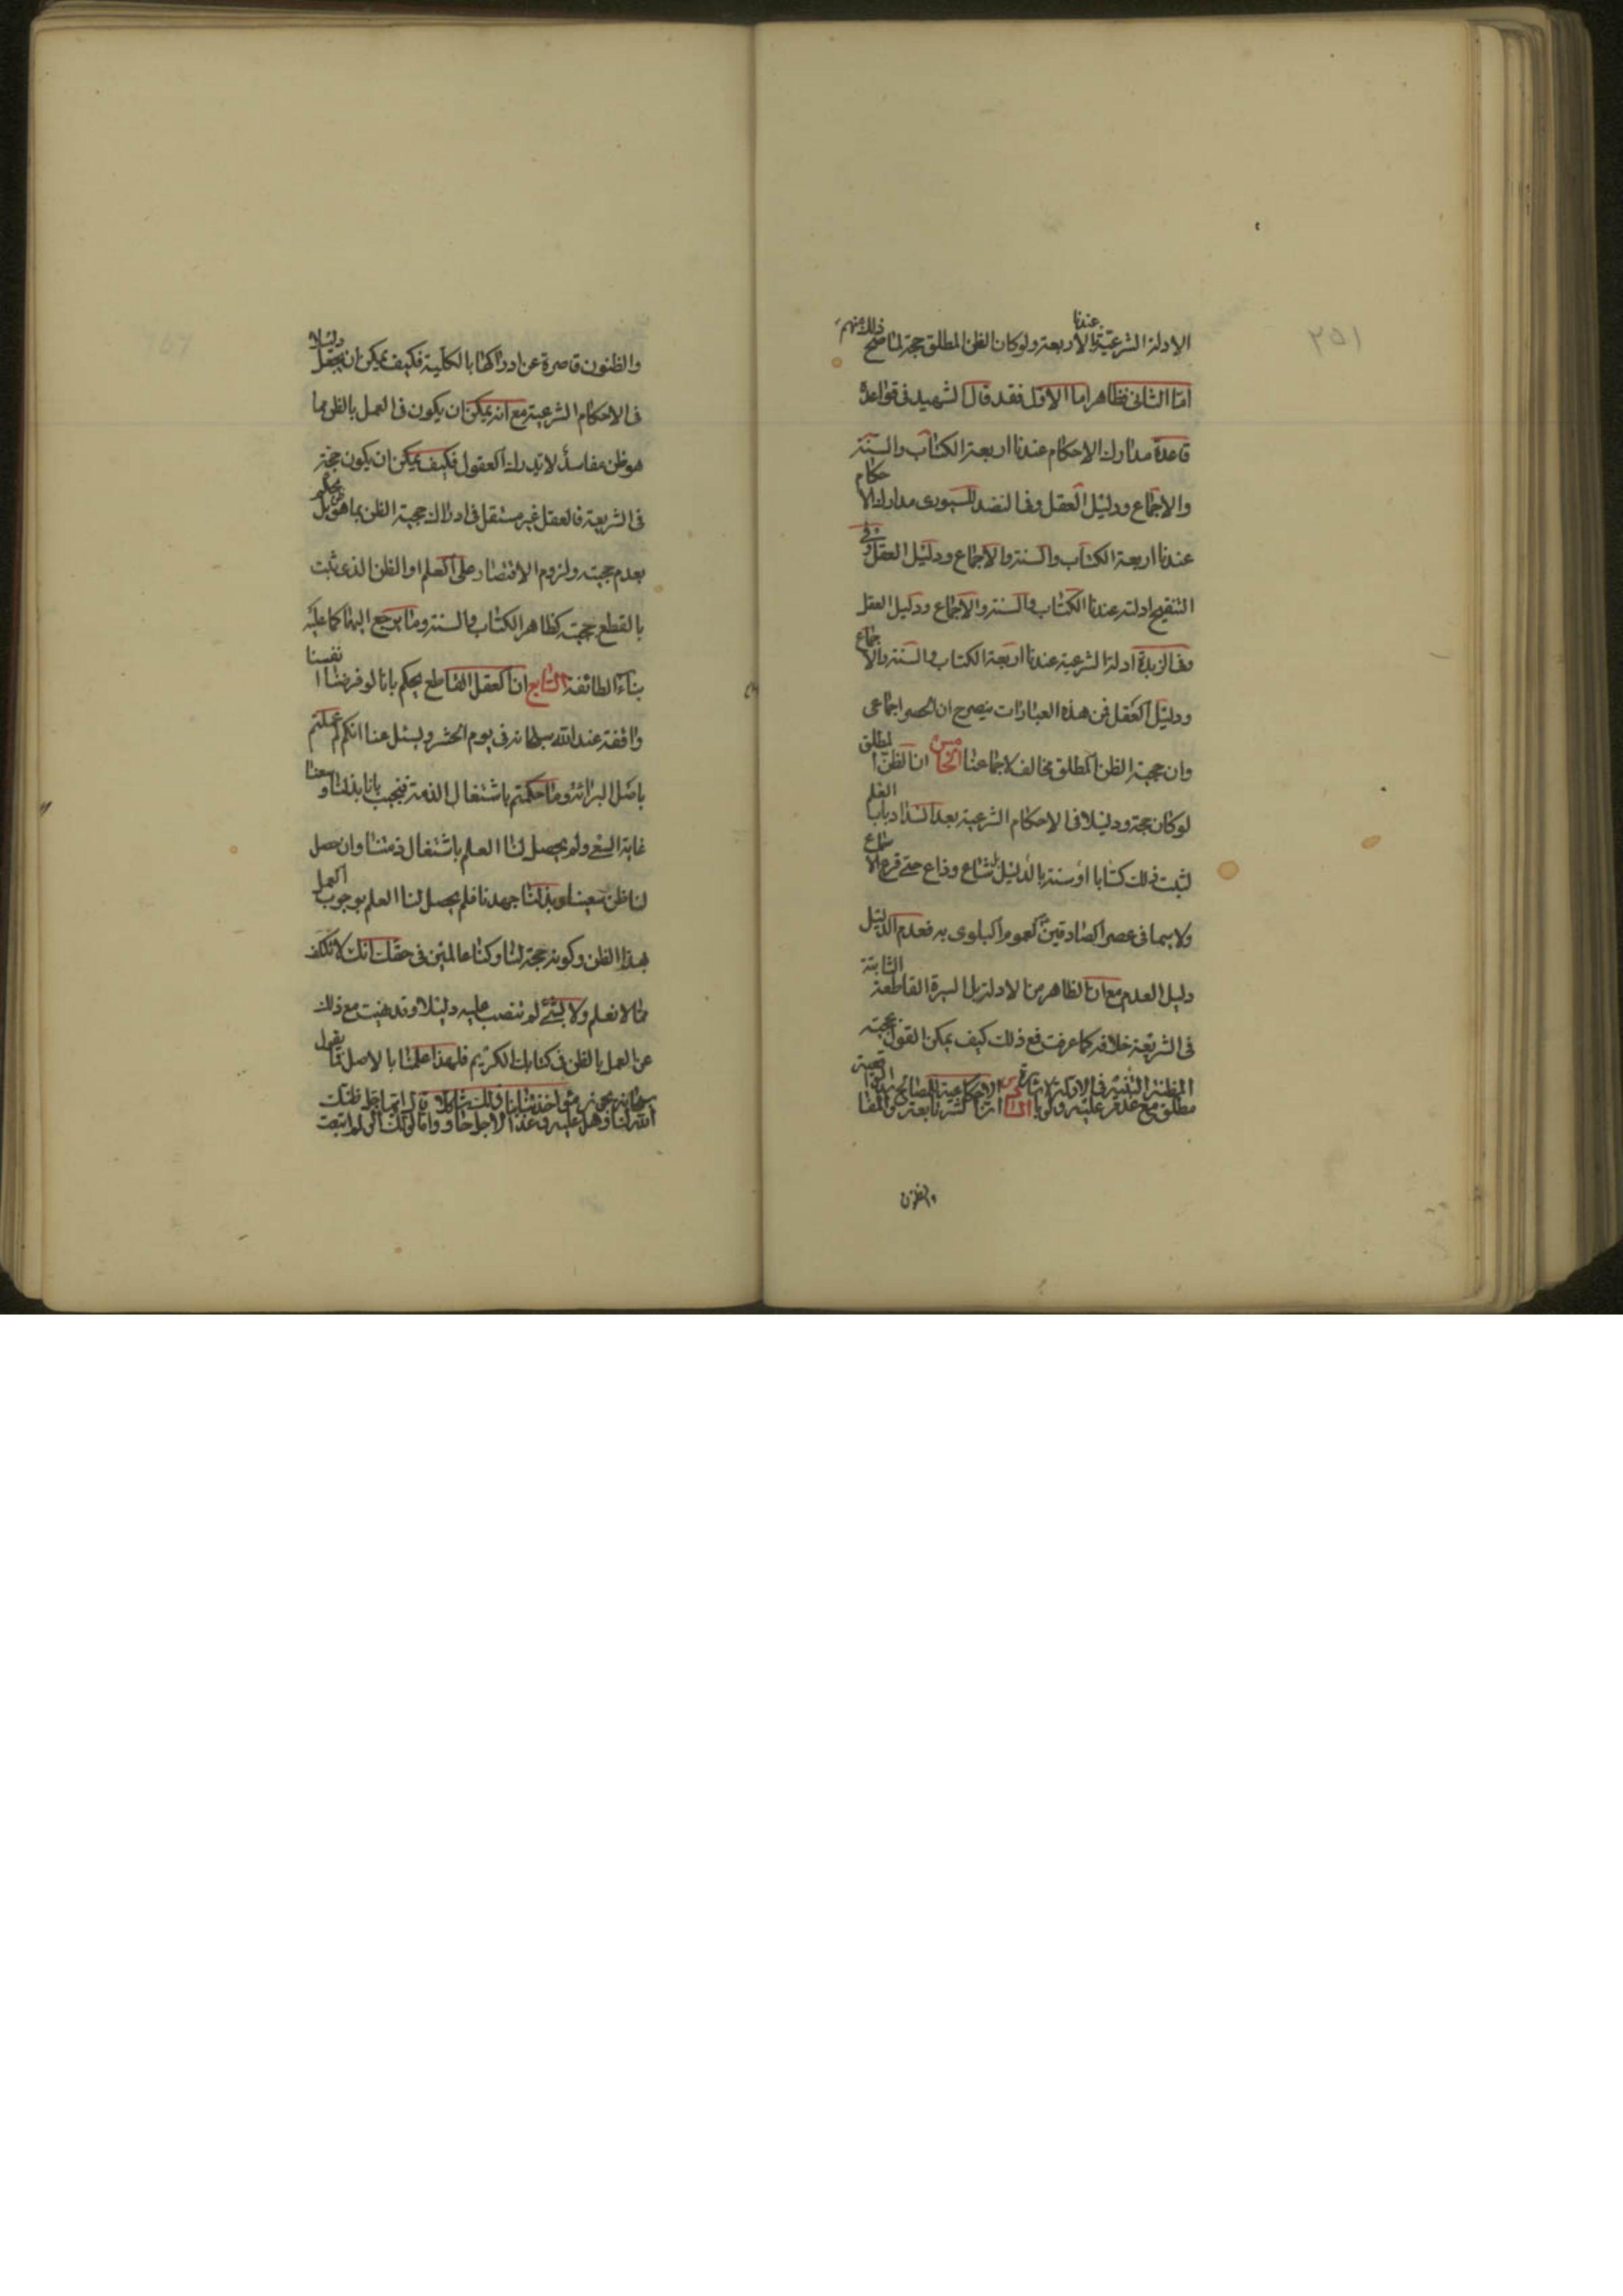 ٢٥١
الادلة الشرعية عندنا الاربعة ولو كان الظن المطلق حجة لما صح ذلك منهم
اما الثانى فظاهر اما الاول فقد قال الشهيد فى قواعده
قاعدة مدارك الاحكام عندنا اربعة الكتاب والسنة
والاجماع ودليل العقل وفى النضد للسيورى مدارك الاحكام
عندنا اربعة الكتاب والسنة والاجماع ودليل العقل وفى
التنقيح ادلته عندنا الكتاب والسنة والاجماع ودليل العقل
وفى الزبدة ادلة الشرعية عندنا اربعة الكتاب والسنة والاجماع
ودليل العقل فمن هذه العبارات يتصرح ان الحصر اجماعى
وان حجية الظن المطلق مخالف لاجماعنا الخامس ان الظن المطلق
لو كان حجة ودليلا فى الاحكام الشرعية بعد انسداد باب العلم
لثبت ذلك كتابا او سنة بالدليل شاع وذاع حتى قرع الاسماع
ولا سيما فى عصر الصادقين لعموم البلوى به فعدم الدليل
دليل العدم مع ان الظاهر من الادلة بل السيرة القاطعة الثابتة
فى الشريعة خلافه كما عرفت فمع ذلك كيف يمكن القول بحجية
مطلق
والظنون
والظنون قاصرة عن ادراكها بالكلية فكيف يمكن ان يجعل دليلا
فى الاحكام الشرعية مع انه يمكن ان يكون فى العمل بالظن مما
هو ظن مفاسد لا تدرك العقول فكيف يمكن ان يكون حجة
فى الشريعة فالعقل غير مستقل فى ادراك حجية الظن بما هو ظن بل يحكم
بعدم حجيته ولزوم الاقتصار على العلم او الظن الذى ثبت
بالقطع حجيته كظاهر الكتاب والسنة وما يرجع اليها كما عليه
بناء الطائفة السابع ان العقل القاطع يحكم بانا لو فرضنا انفسنا
واقفة عند الله سبحانه فى يوم الحشر ويسئل عنا انكم لم عملتم
باصل البرائة وما حكمتم باشتغال الذمة فنجيب بانا بذلنا وسعنا
غاية السعى ولم يحصل لنا العلم باشتغال ذمتنا وان حصل
لنا ظن سعينا وبذلنا جهدنا فلم يحصل لنا العلم بوجوب العمل
بهذا الظن وكونه حجة لنا وكنا عالمين فى حقك انك لا تكلف
مما لا نعلم ولا بشئ لم تنصب عليه دليلا وقد نهيت مع ذلك
عن العمل بالظن فى كتابك الكريم فلهذا عملنا بالاصل فيقول